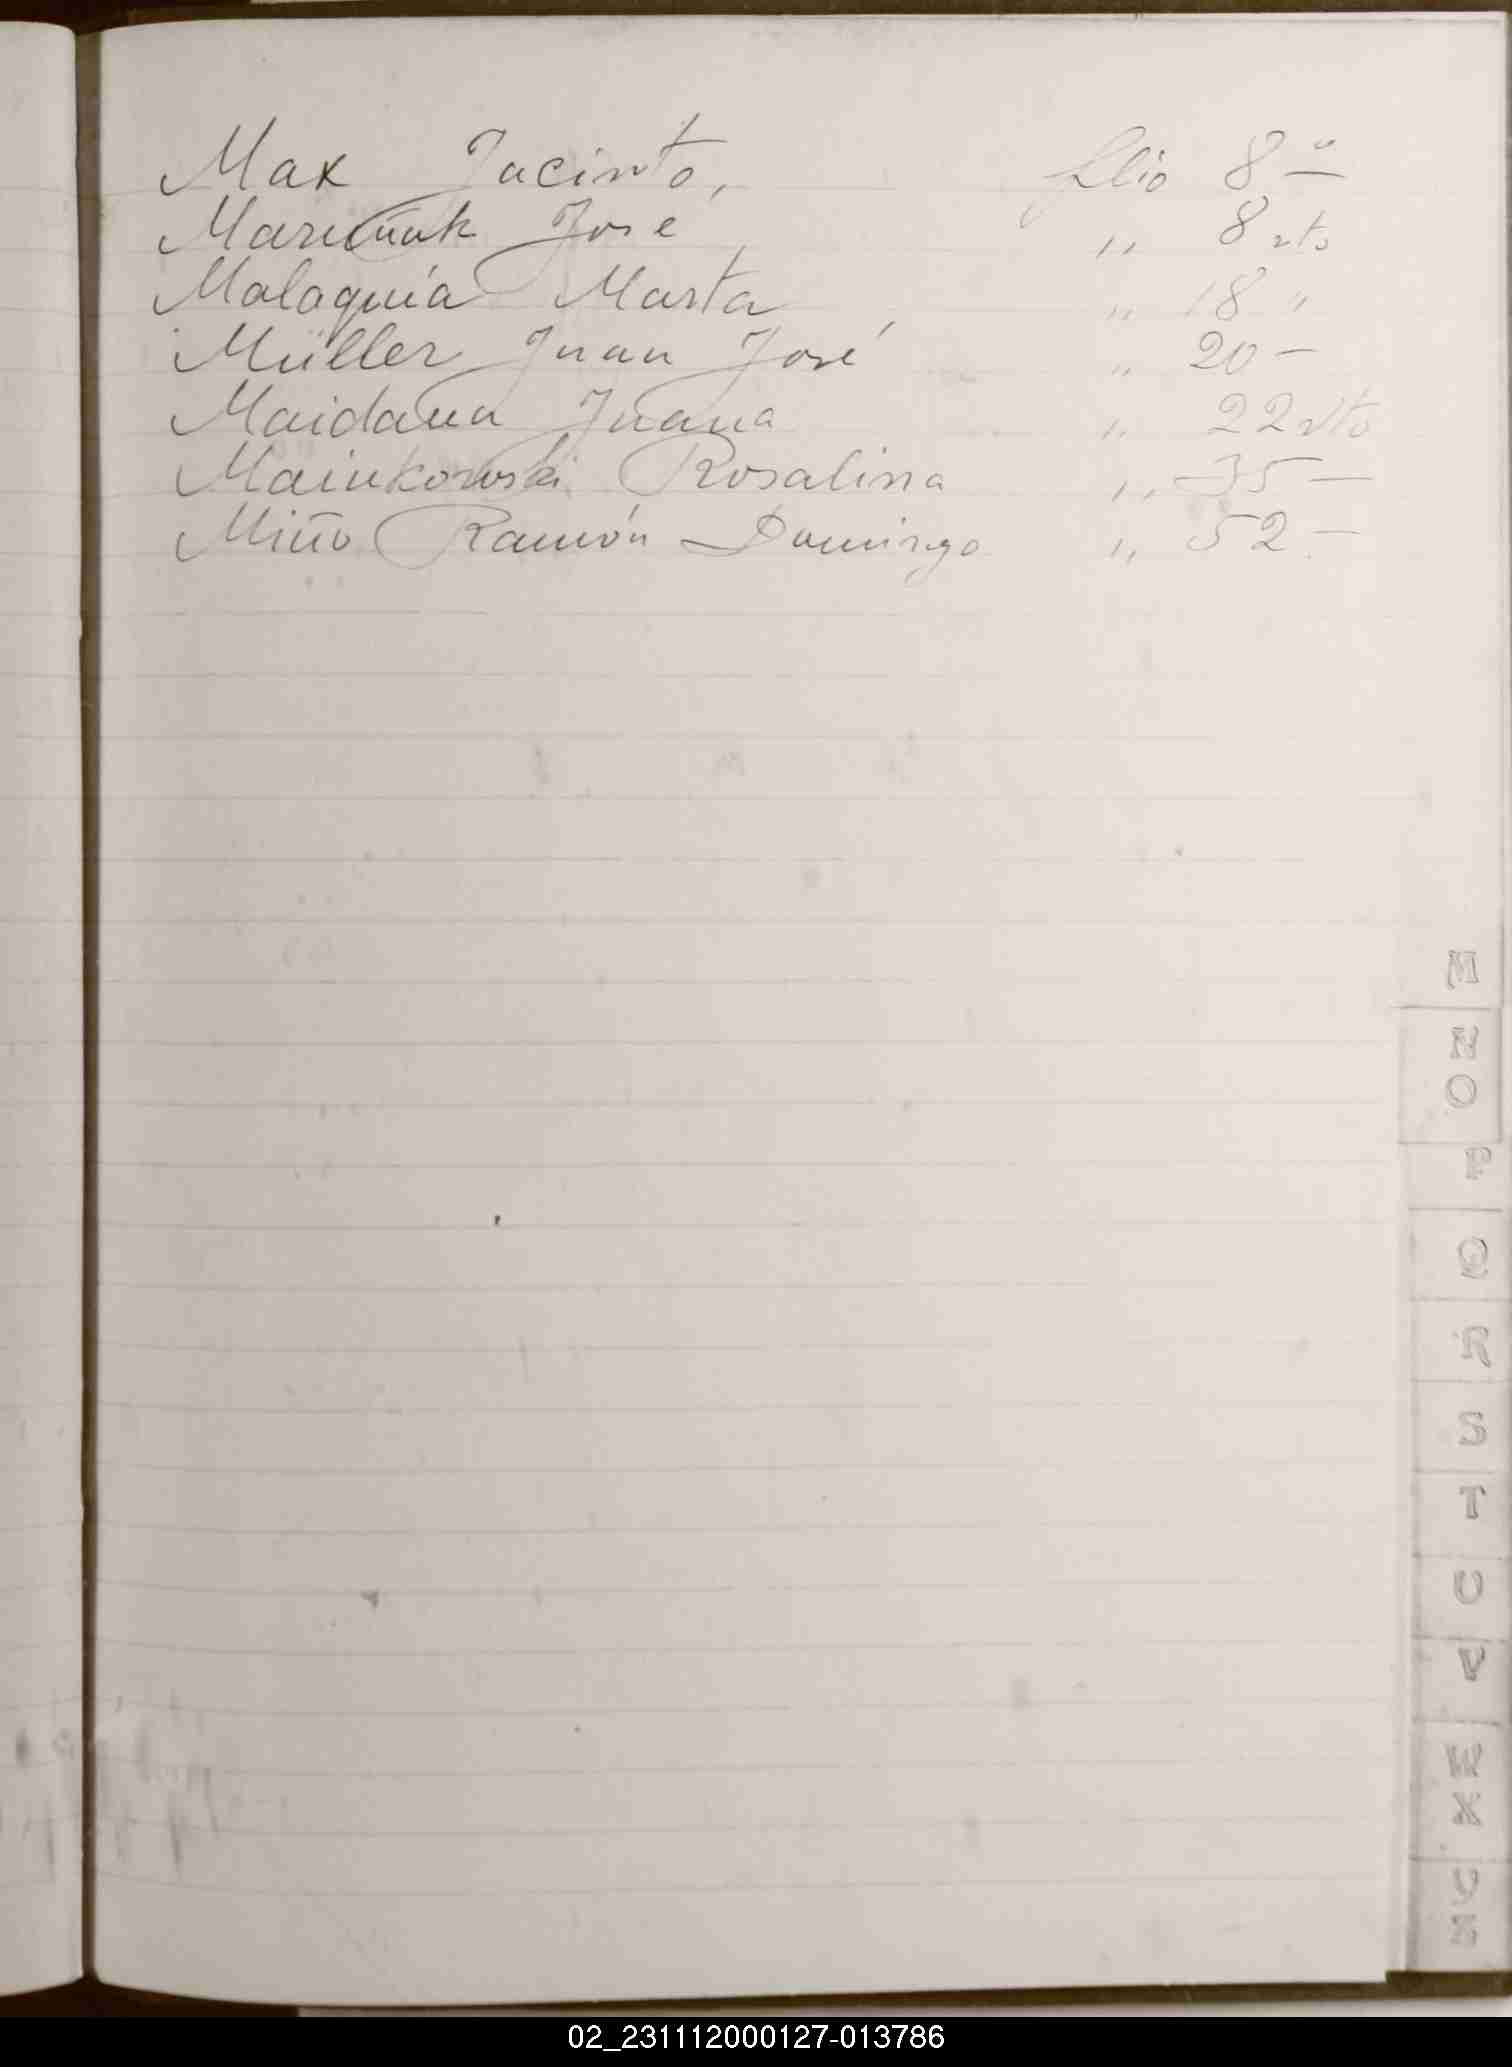 Max Jacinto, folio 8 —
José „ 8 vto
Malaquía Marta, „ 18 "
Müller Juan José „ 20 —
Maidana Juana „ 22 vto
Mainkowski Rosalina „ 35 —
Miño Ramón Domingo „ 52. —
M
N
O
P
Q
R
S
T
U
V
W
X
Y
Z
02_231112000127-013786